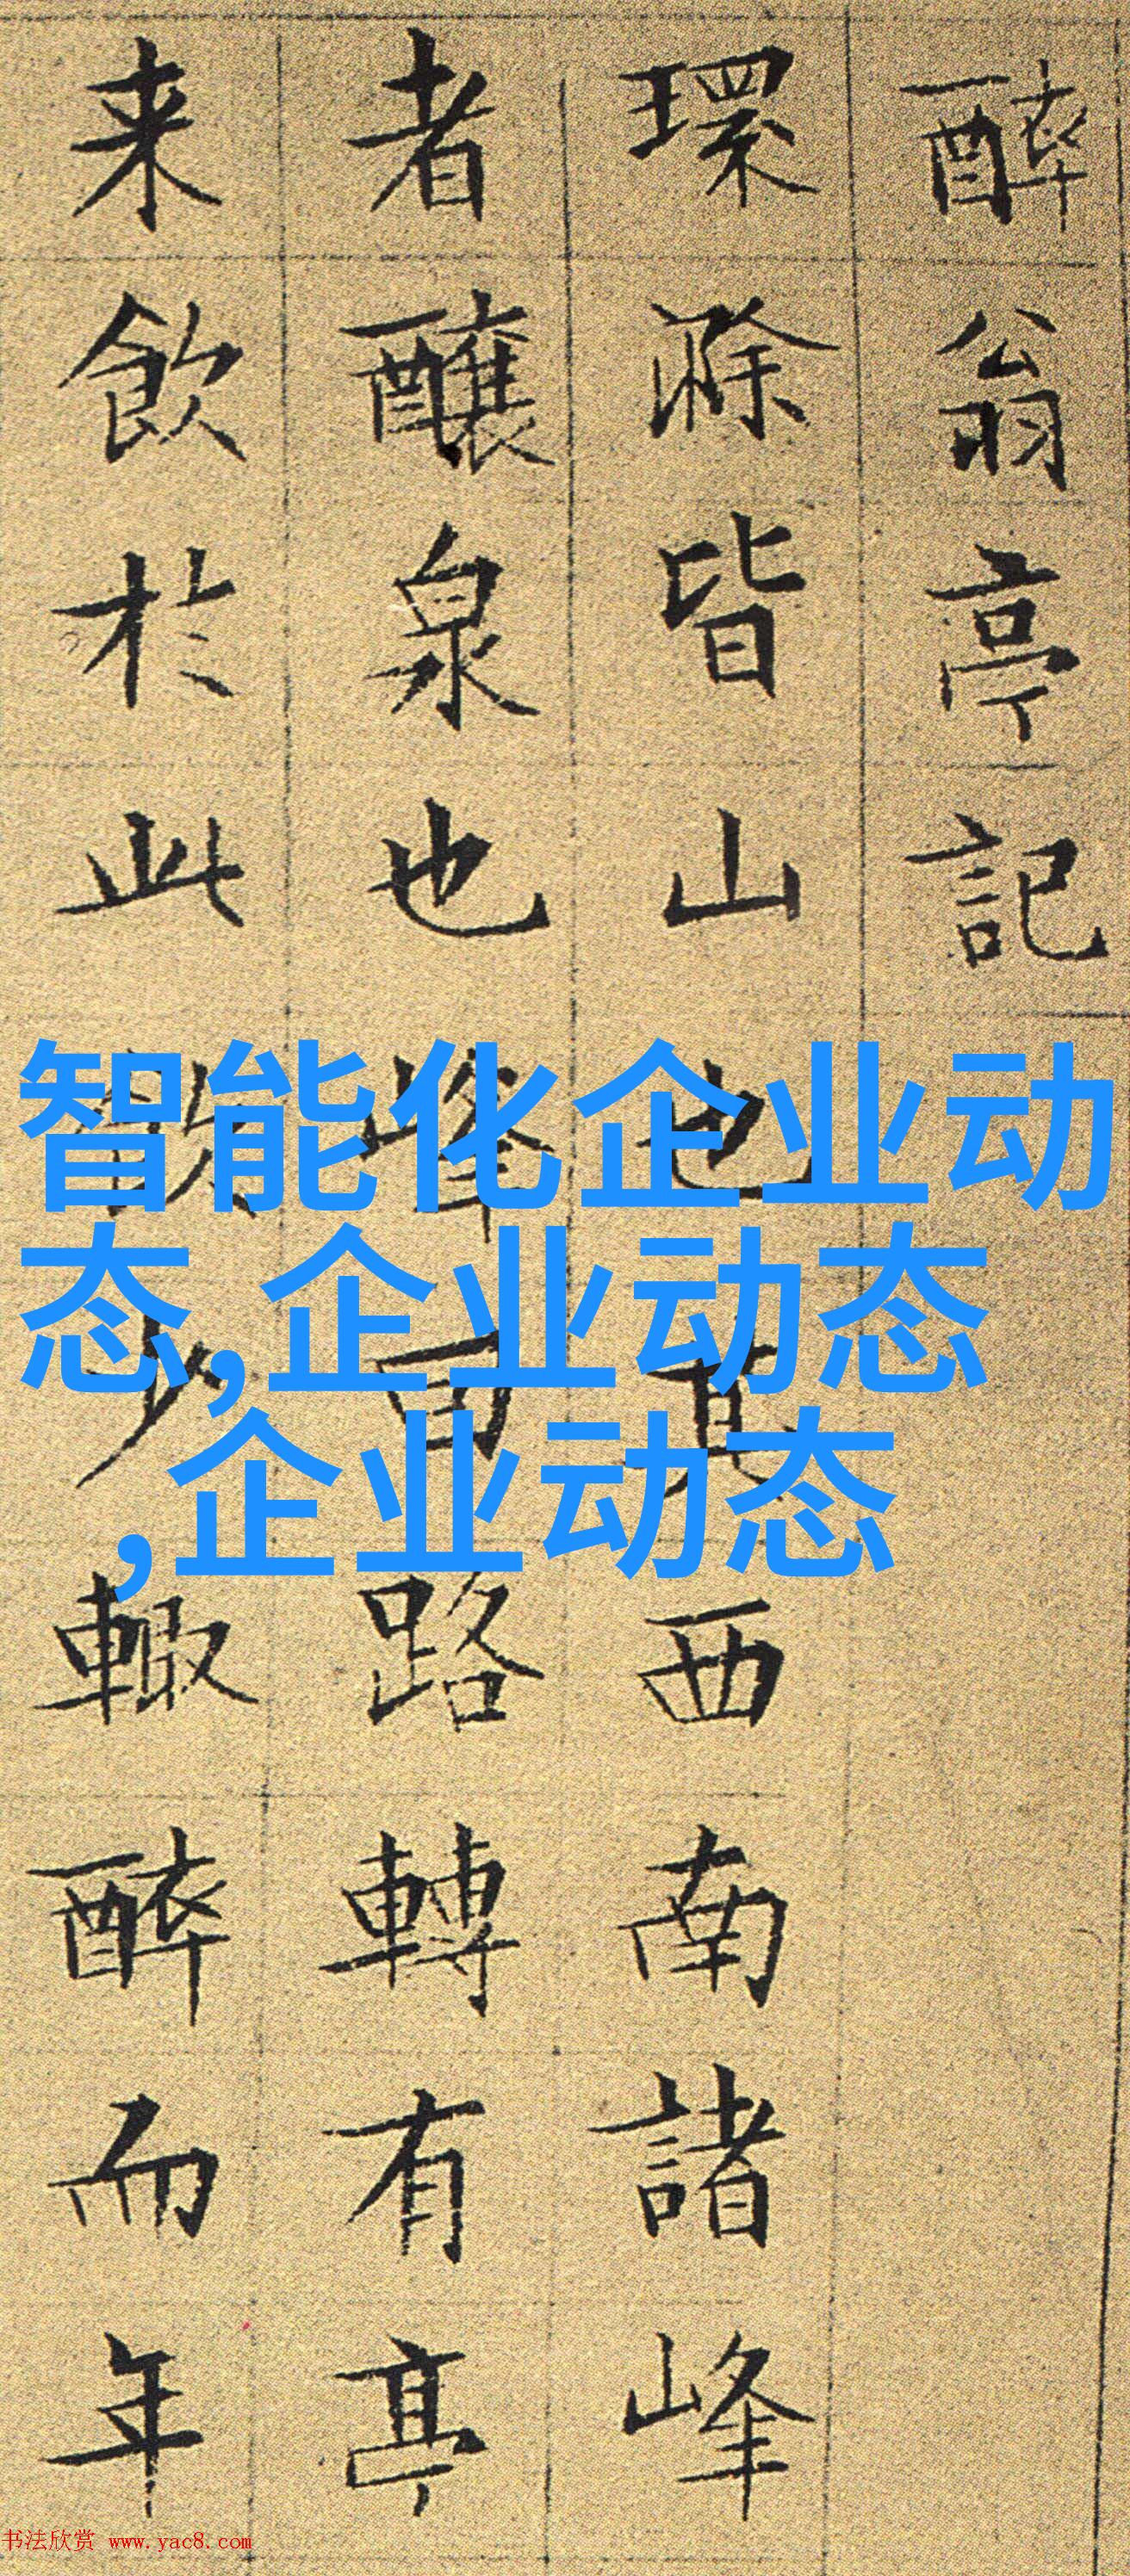 醉翁亭記
環滁皆山也其西南諸峰
者釀泉也峰回路轉有亭
来飲於此飲少輙醉而年
智能化企业动
态,企业动态
,企业动态
书法欣赏 www.yac8.com